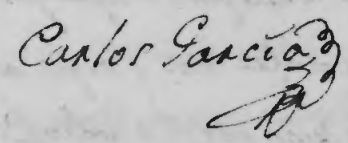 Carlos García